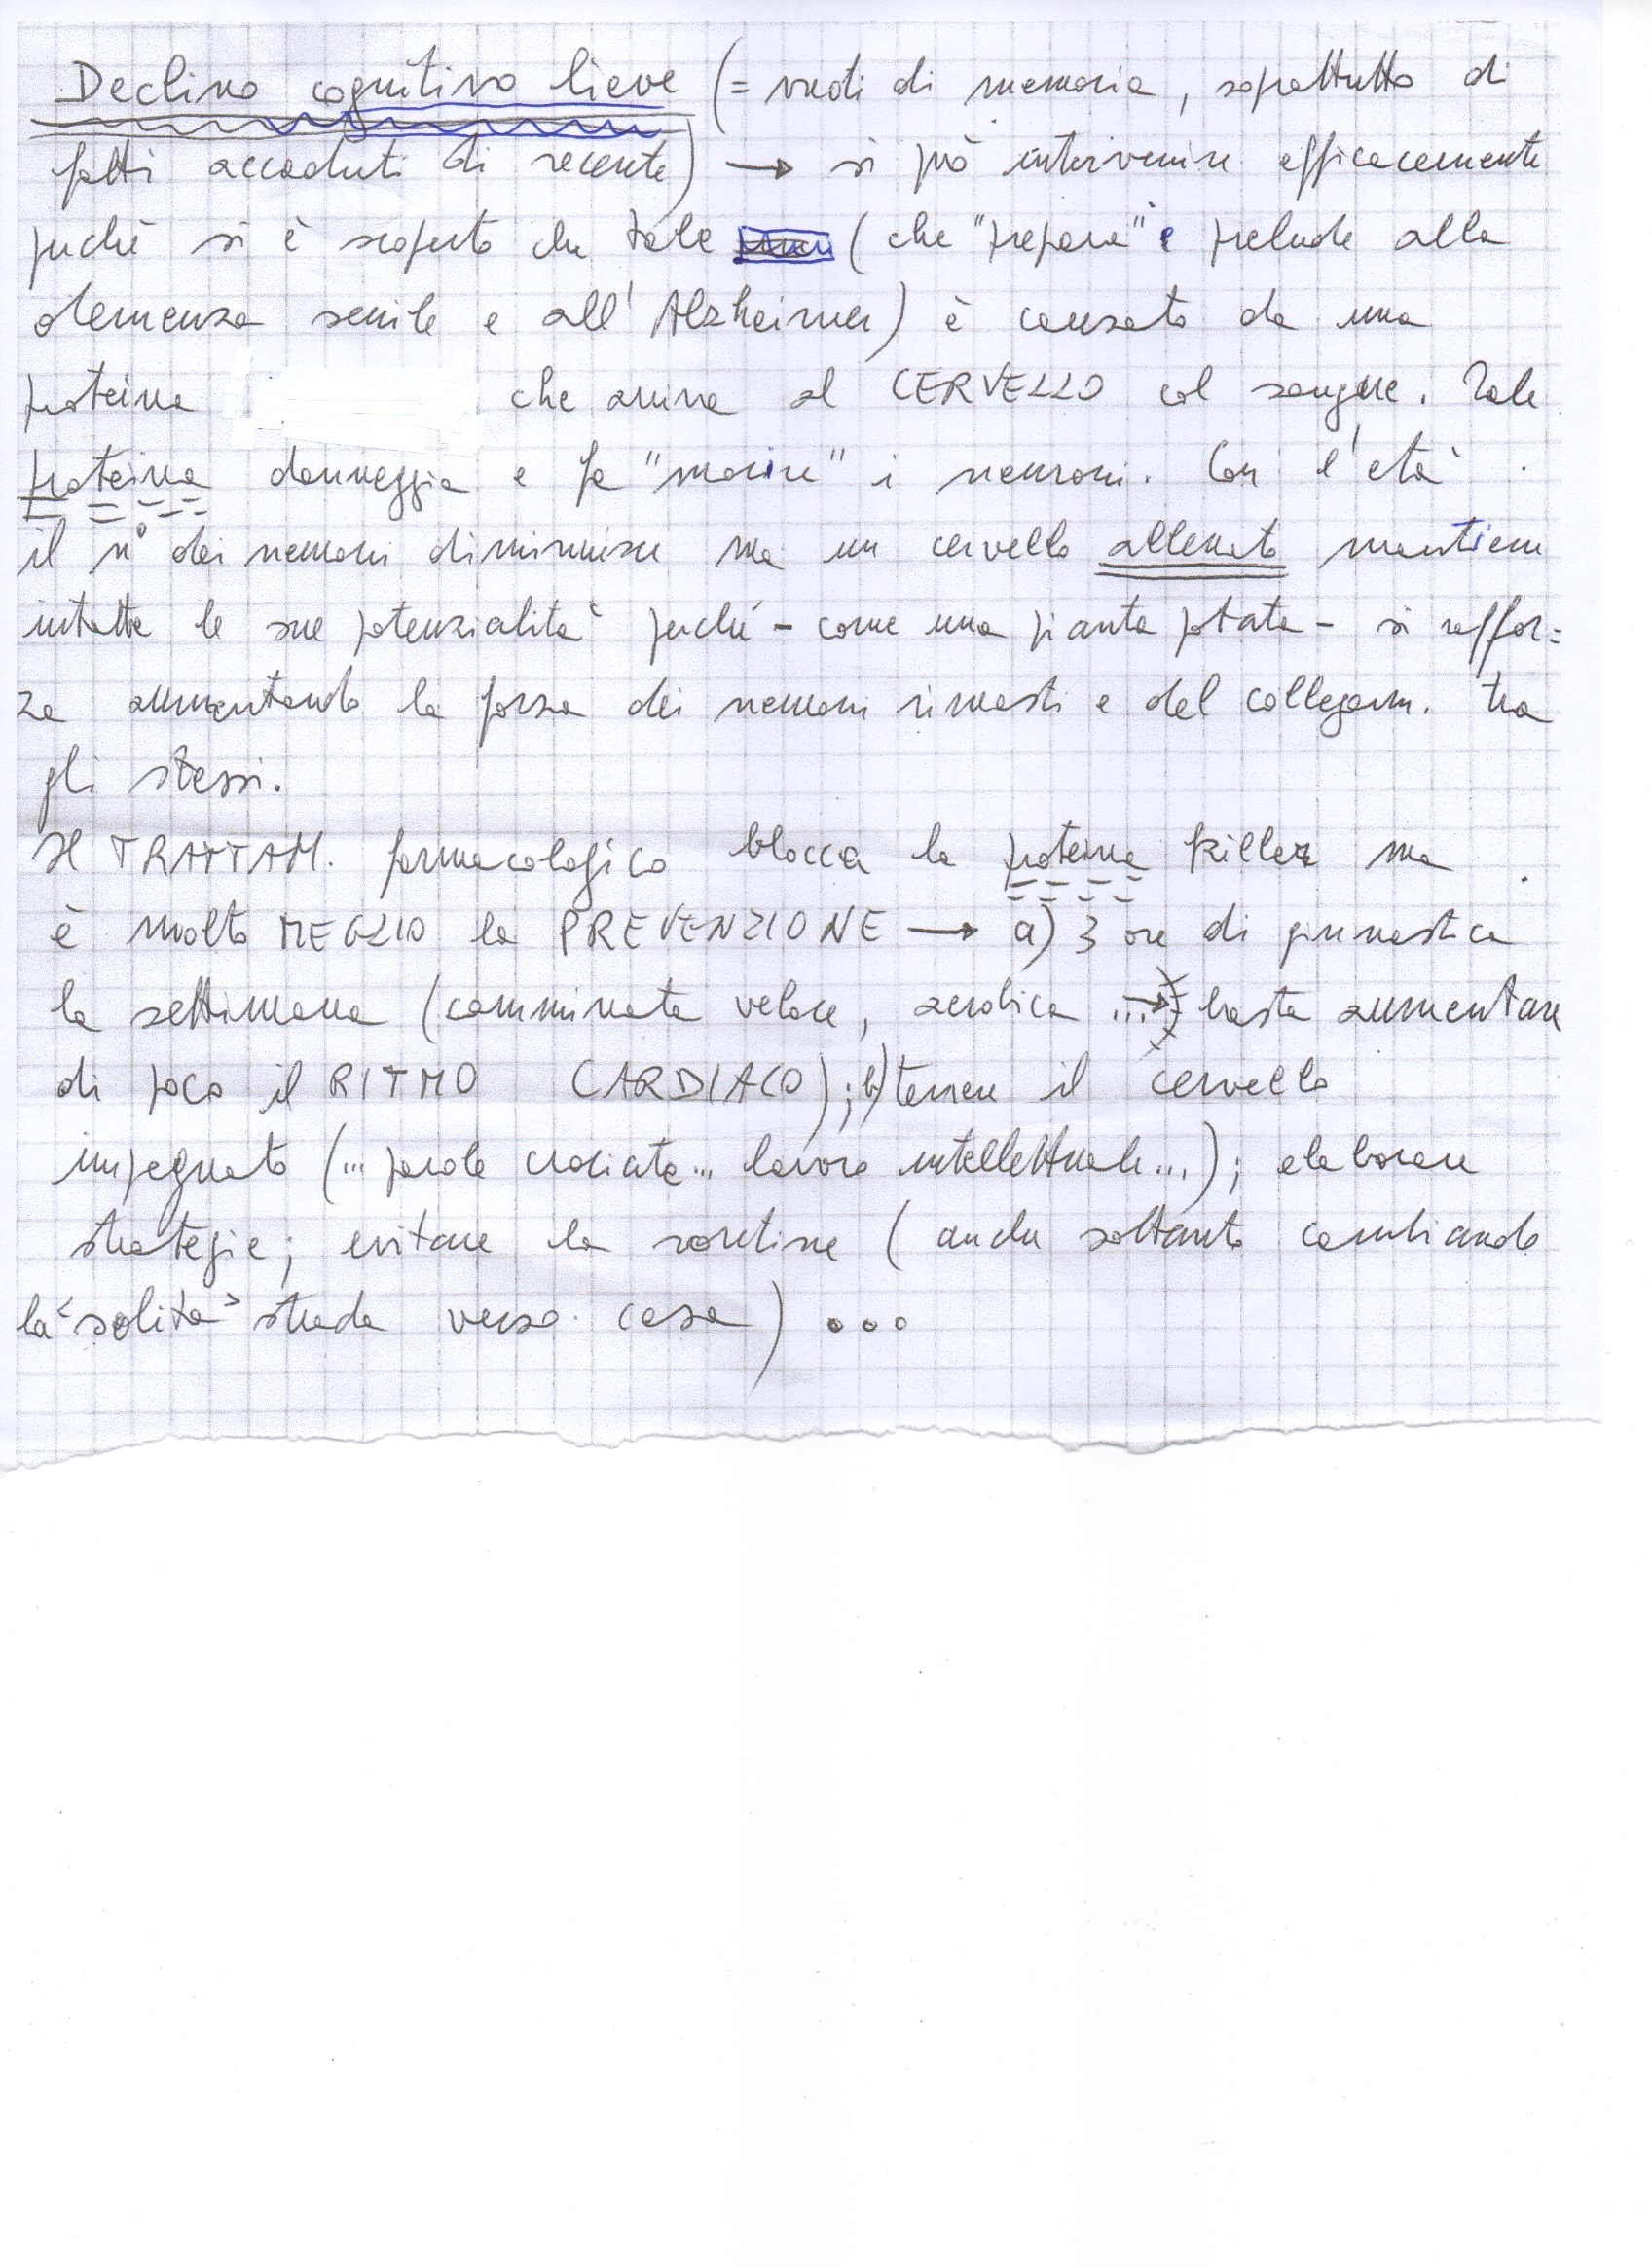 Declino cognitivo lieve (= vuoti di memoria, soprattutto di
fatti accaduti di recente) → si può intervenire efficacemente
perché si è scoperto che tale (che "prepara" e prelude alla
demenza senile e all'Alzheimer) è causato da una
proteina che arriva al CERVELLO col sangue. Tale
proteina danneggia e fa "morire" i neuroni. Con l'età
il n° dei neuroni diminuisce ma un cervello allenato mantiene
intatte le sue potenzialità perché - come una pianta potata - si raffor=
za aumentando la forza dei neuroni rimasti e del collegam. tra
gli stessi.
Il TRATTAM. farmacologico blocca la proteina killer ma
è molto MEGLIO la PREVENZIONE → a) 3 ore di ginnastica
la settimana (camminata veloce, aerobica ... → basta aumentare
di poco il RITMO CARDIACO); b) tenere il cervello
impegnato (... parole crociate... lavoro intellettuale...); elaborare
strategie; evitare la routine (anche soltanto cambiando
la "solita" strada verso casa) ...